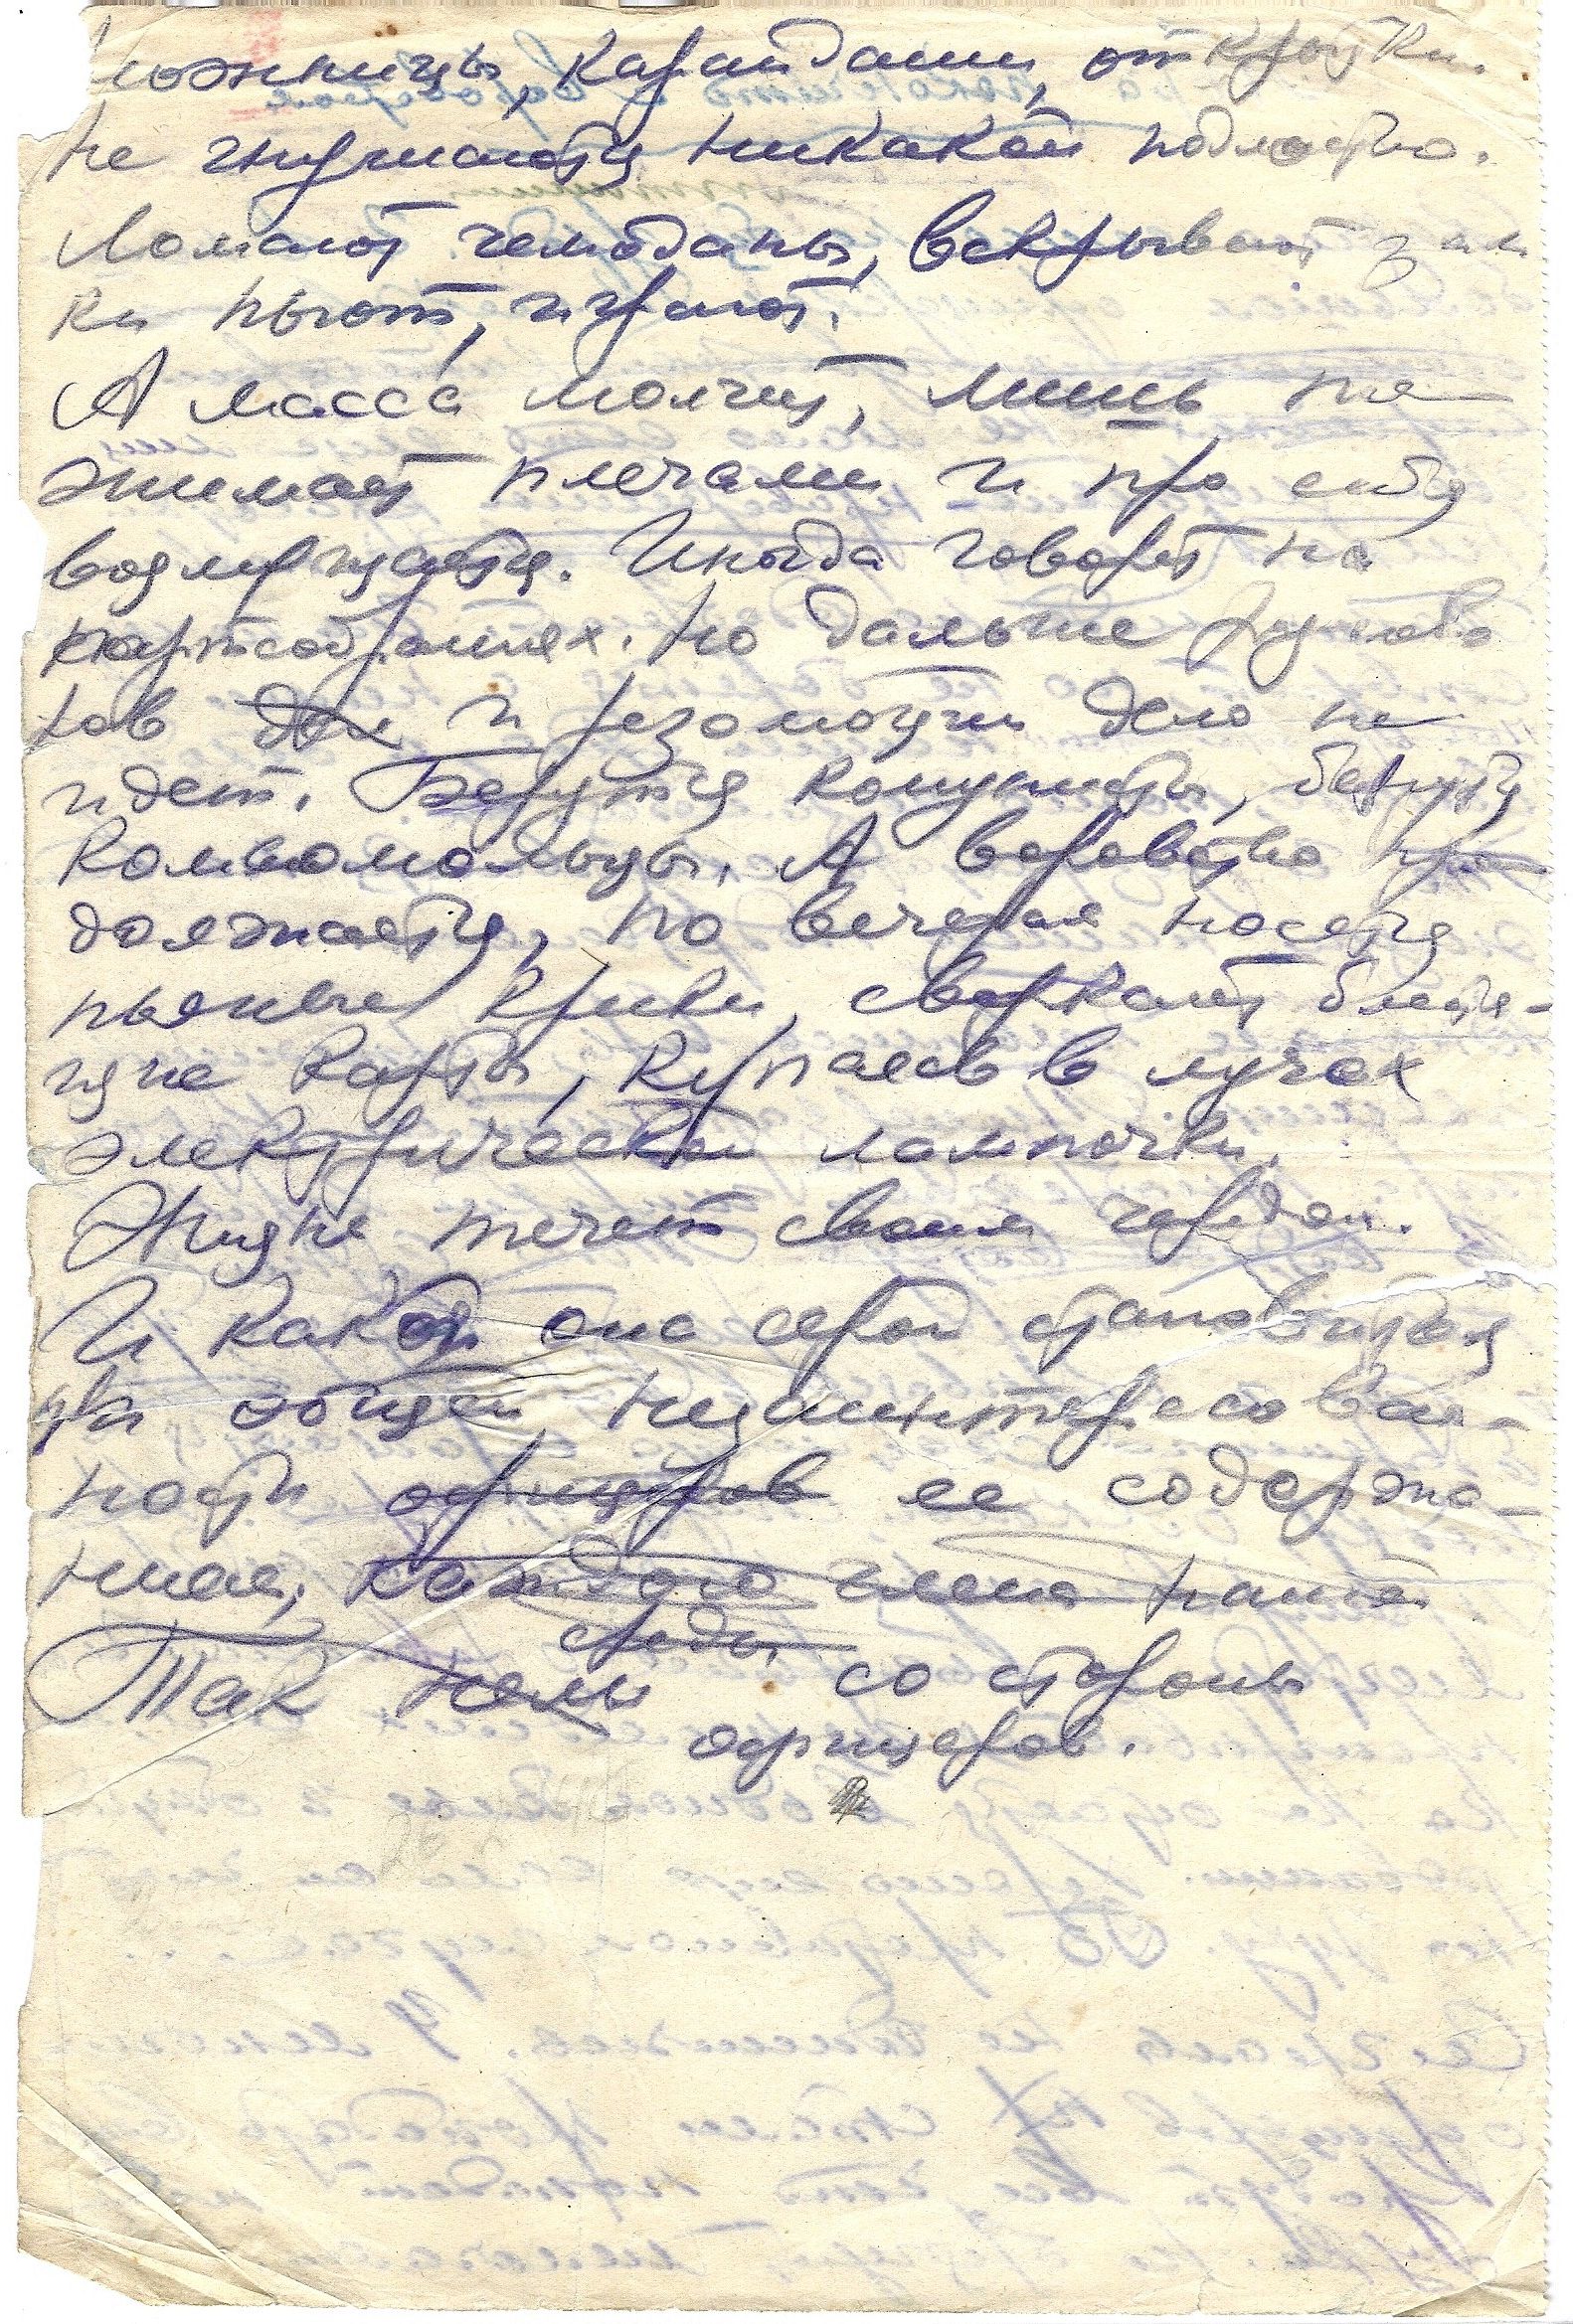 ножницы, карандаши, открытки.
Не гнушаются никакой подлостью.
Ломают чемоданы, вскрывают зам
ки пьют, играют.
А масса молчит, лишь по
жимает плечами и про себя
возмущается. Иногда говорят на
партсобраниях. Но дальше
ков и резолюции дело не
идет. Берутся комунисты, берутся
Комсомольцы. А воровство про
должается, по вечерам носятся
пьяные крики, сверкают блестя-
щие карты, купаясь в лучах
электрической лампочки.
Жизнь течет своим чередом.
И какой она серой становится
при общей незаинтересован-
ности офицеров ее содержа-
нием, каждого члена нашей
среды.
Так со стороны
офицеров.